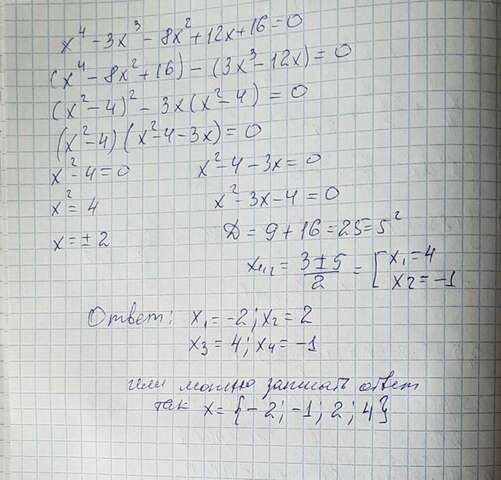 x⁴ - 3x³ - 8x² + 12x + 16 = 0
(x⁴ - 8x² + 16) - (3x³ - 12x) = 0
(x² - 4)² - 3x(x² - 4) = 0
(x² - 4)(x² - 4 - 3x) = 0
x² - 4 = 0 x² - 4 - 3x = 0
x² = 4 x² - 3x - 4 = 0
x = ± 2 D = 9 + 16 = 25 = 5²
x₁,₂ = (3 ± 5)/2 = [x₁ = 4
x₂ = -1
Ответ: x₁ = -2; x₂ = 2
x₃ = 4; x₄ = -1
или можно записать ответ
так x = {-2; -1; 2; 4}